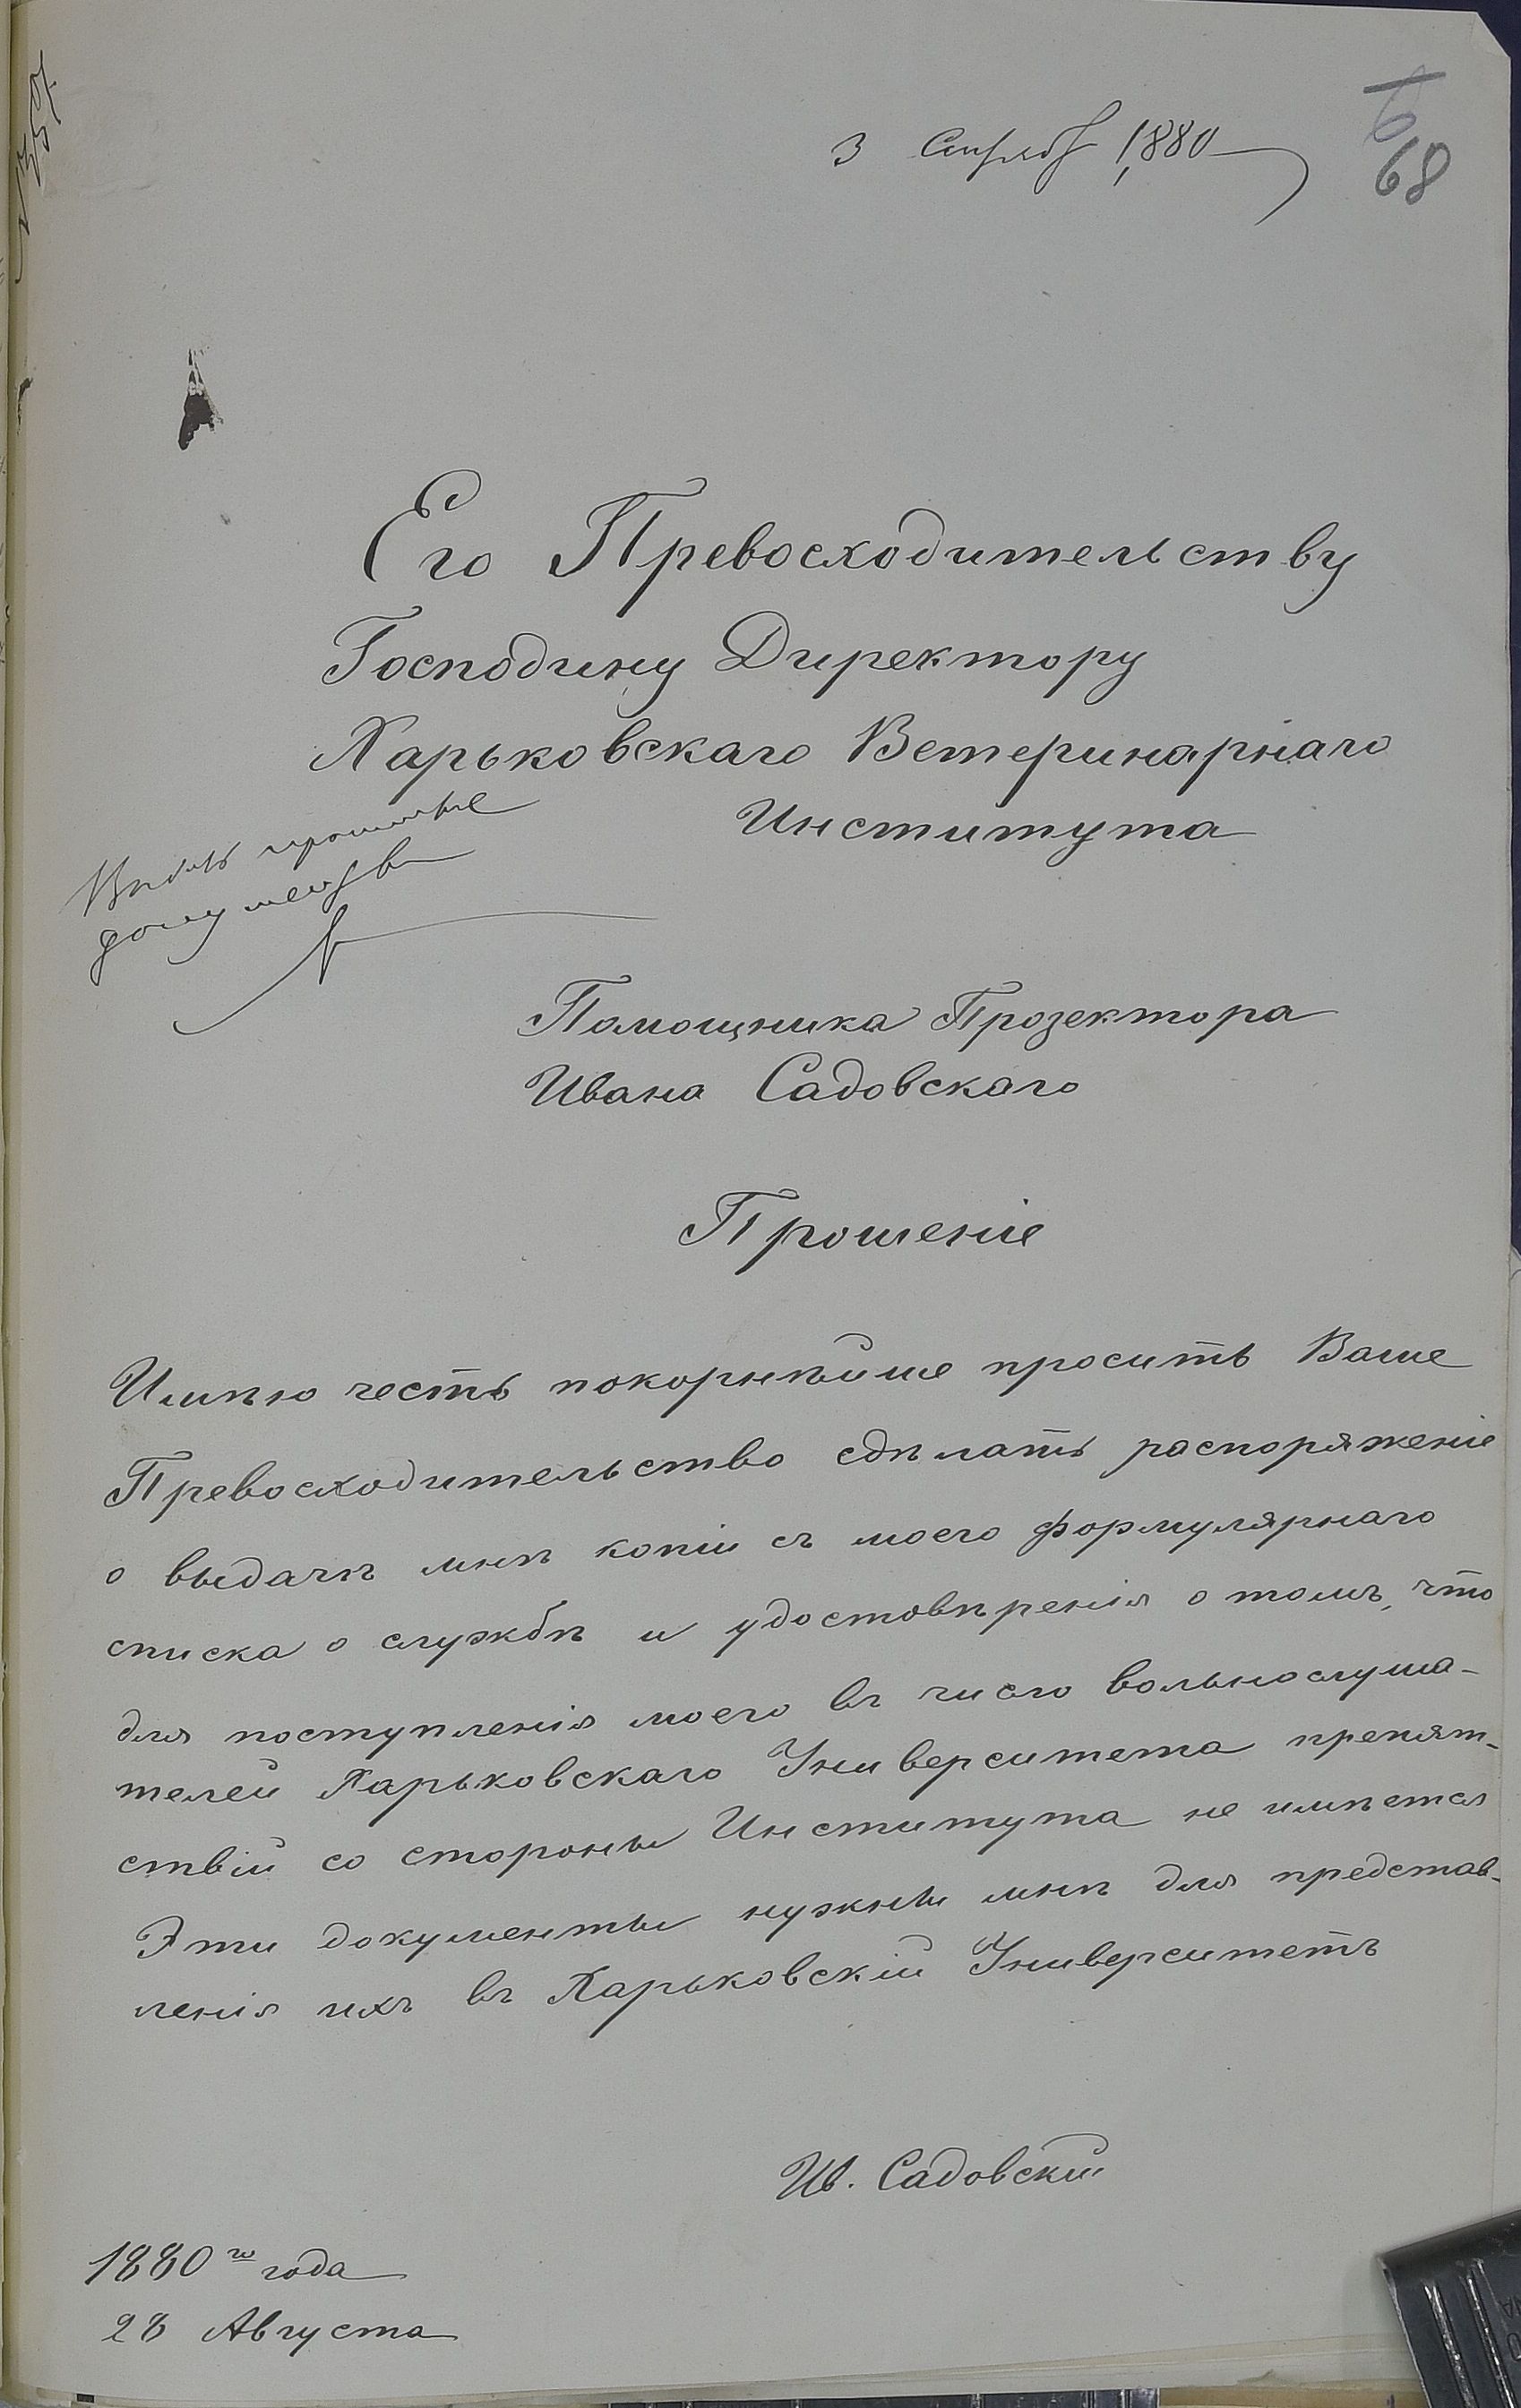 3 Сентяб 1880
6
68
Его Превосходительству
Господину Директору
Харьковскаго Ветеринарнаго
Института
Помощника Прозектора
Ивана Садовскаго
Прошеніе
Имѣю честь покорнѣйше просить Ваше
Превосходительство сдѣлать распоряженіе
о выдачѣ мнѣ копіи съ моего формулярнаго
списка о службѣ и удостовѣренія о томъ, что
для поступленія моего въ число вольнослуша-
телей Харьковскаго Университета препят-
ствій со стороны Института не имѣется
Эти документы нужны мнѣ для представ-
ленія ихъ въ Харьковскій Университетъ
Ив. Садовскій
1880го года
28 Августа